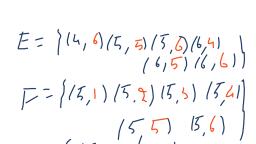 E = {(4,6)(5,5)(5,6)(6,4)
(6,5)(6,6)}
F = {(5,1)(5,2)(5,3)(5,4)
(5,5) (5,6)}